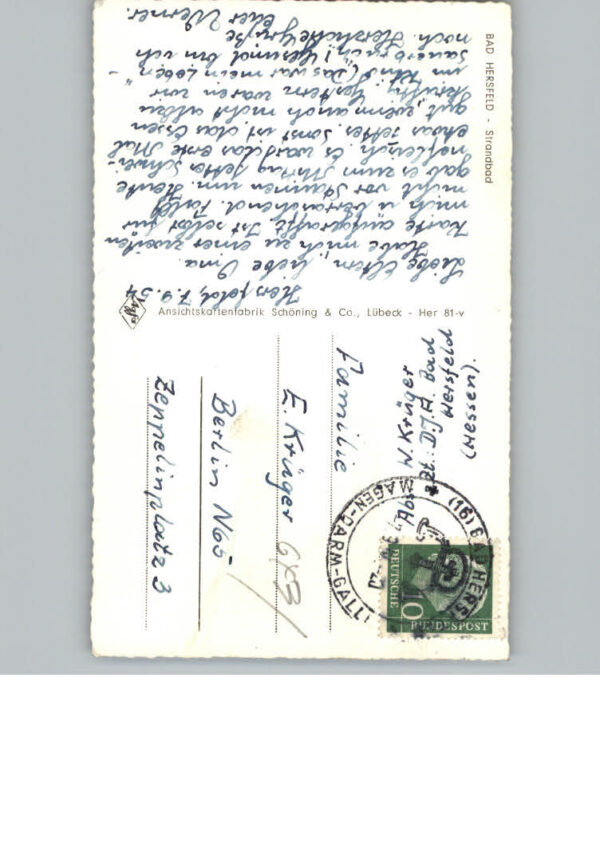 BAD HERSFELD - Strandbad
Hersfeld, 7.9.54
Liebe Eltern, liebe Oma.
Habe mich zu einer zweiten
Karte aufgerafft. Ist selbst für
mich u. überraschend. Fallt
nicht vor Staunen um. Heute
gab es zum Mittag fettes Schwei-
nefleisch. Es war das erste Mal
etwas fettes. Sonst ist das Essen
gut, wenn auch nicht allzu
kräftig. Gestern waren wir
im Kino (Das war mein Leben -
Sauerbruch)! Gesund bin ich
noch. Herzliche Grüße
Euer Werner.
Agfa
Ansichtskartenfabrik Schöning & Co., Lübeck - Her 81-v
Abs. W. Krüger
z.Zt.: DJH Bad
Hersfeld
(Hessen).
Familie
E. Krüger
Berlin N65
Zeppelinplatz 3
6x3/
BAD HERSF
(16)
MAGEN-DARM-GALL
DEUTSCHE
BUNDESPOST
10